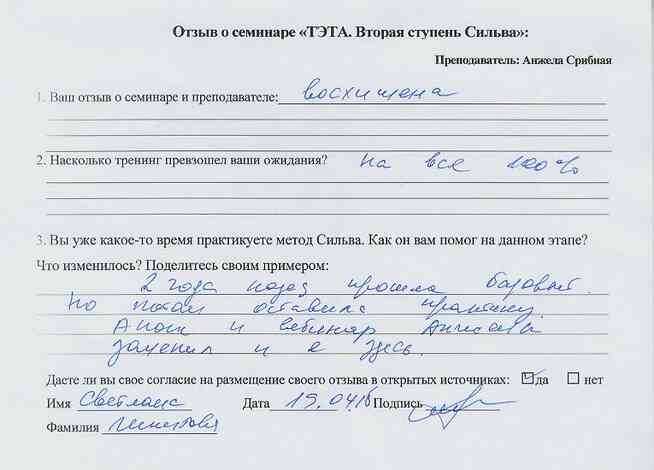 Отзыв о семинаре «ТЭТА. Вторая ступень Сильва»:
Преподаватель: Анжела Срибная
1. Ваш отзыв о семинаре и преподавателе: восхищена
2. Насколько тренинг превзошел ваши ожидания? на все 100%
3. Вы уже какое-то время практикуете метод Сильва. Как он вам помог на данном этапе?
Что изменилось? Поделитесь своим примером:
2 года назад прошла базовый.
Но потом оставила практику.
и вебинар Анжелы
и я здесь.
Даете ли вы свое согласие на размещение своего отзыва в открытых источниках: да нет
Имя Светлана Дата 19.04.16 Подпись
Фамилия